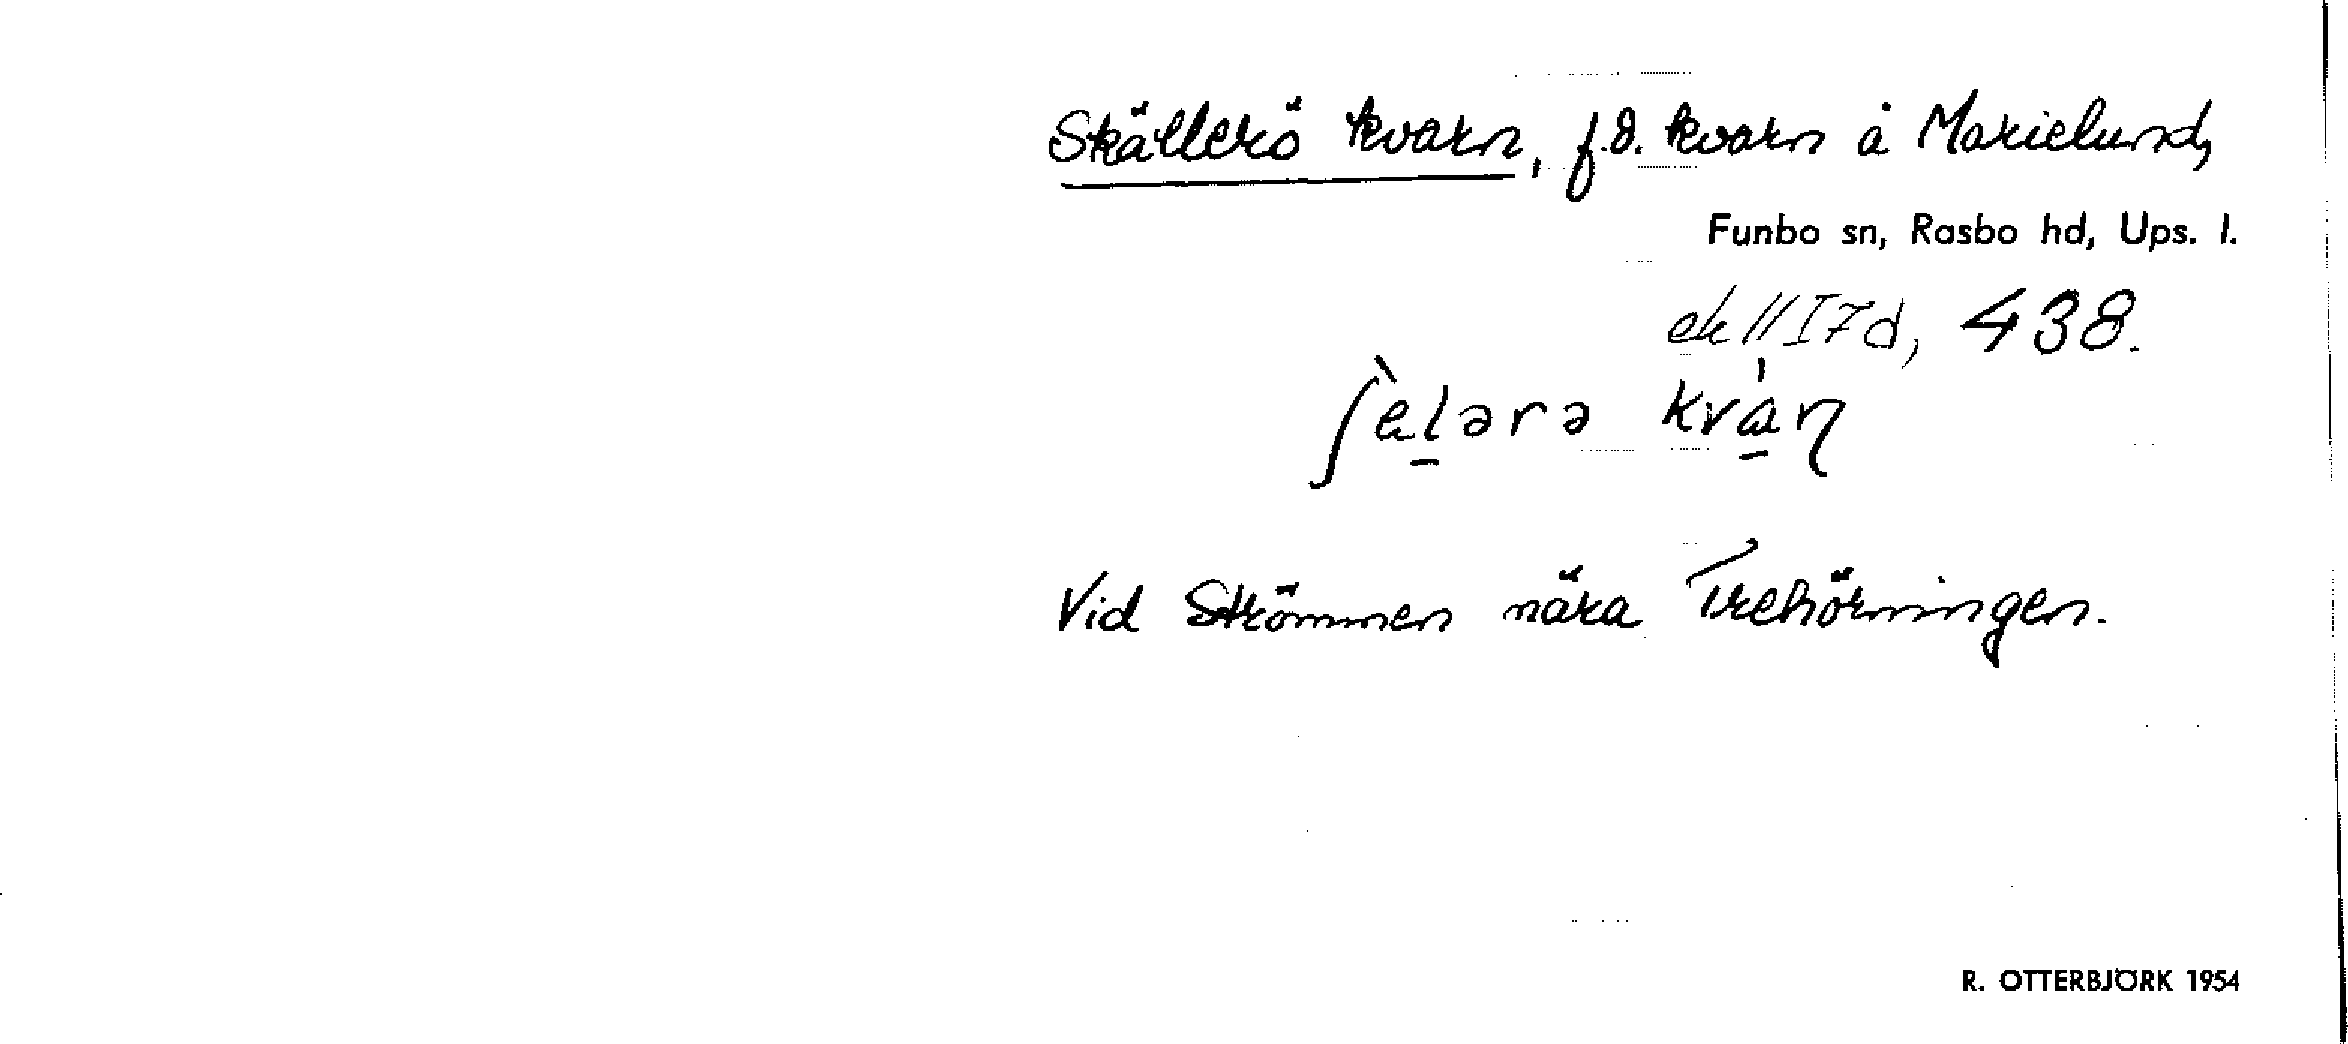 Skällerö kvarn, f.d. kvarn å Marielund,
Funbo sn, Rasbo hd, Ups. l.
ek 11 I 7d, 438.
ʃe̠l̠ərə kvàṇ
Vid Strömmen nära Trehörningen.
R. OTTERBJÖRK 1954